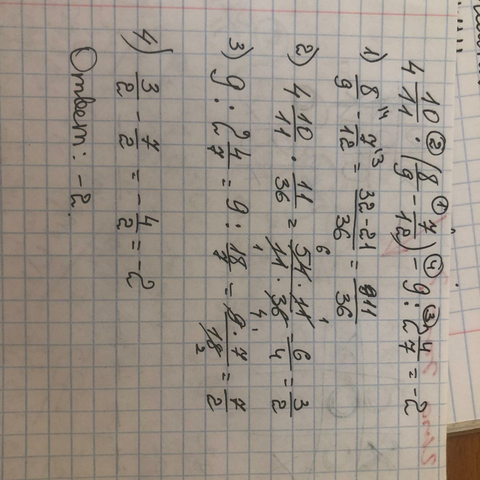 4 10/11 · (8/9 - 7/12) - 9 : 2 4/7 = -2
1) 8/9 - 7/12 = (32 - 21)/36 = 11/36
2) 4 10/11 · 11/36 = (54 · 11)/(11 · 36) = 6/4 = 3/2
3) 9 : 2 4/7 = 9 : 18/7 = (9 · 7)/18 = 7/2
4) 3/2 - 7/2 = -4/2 = -2
Ответ: -2.